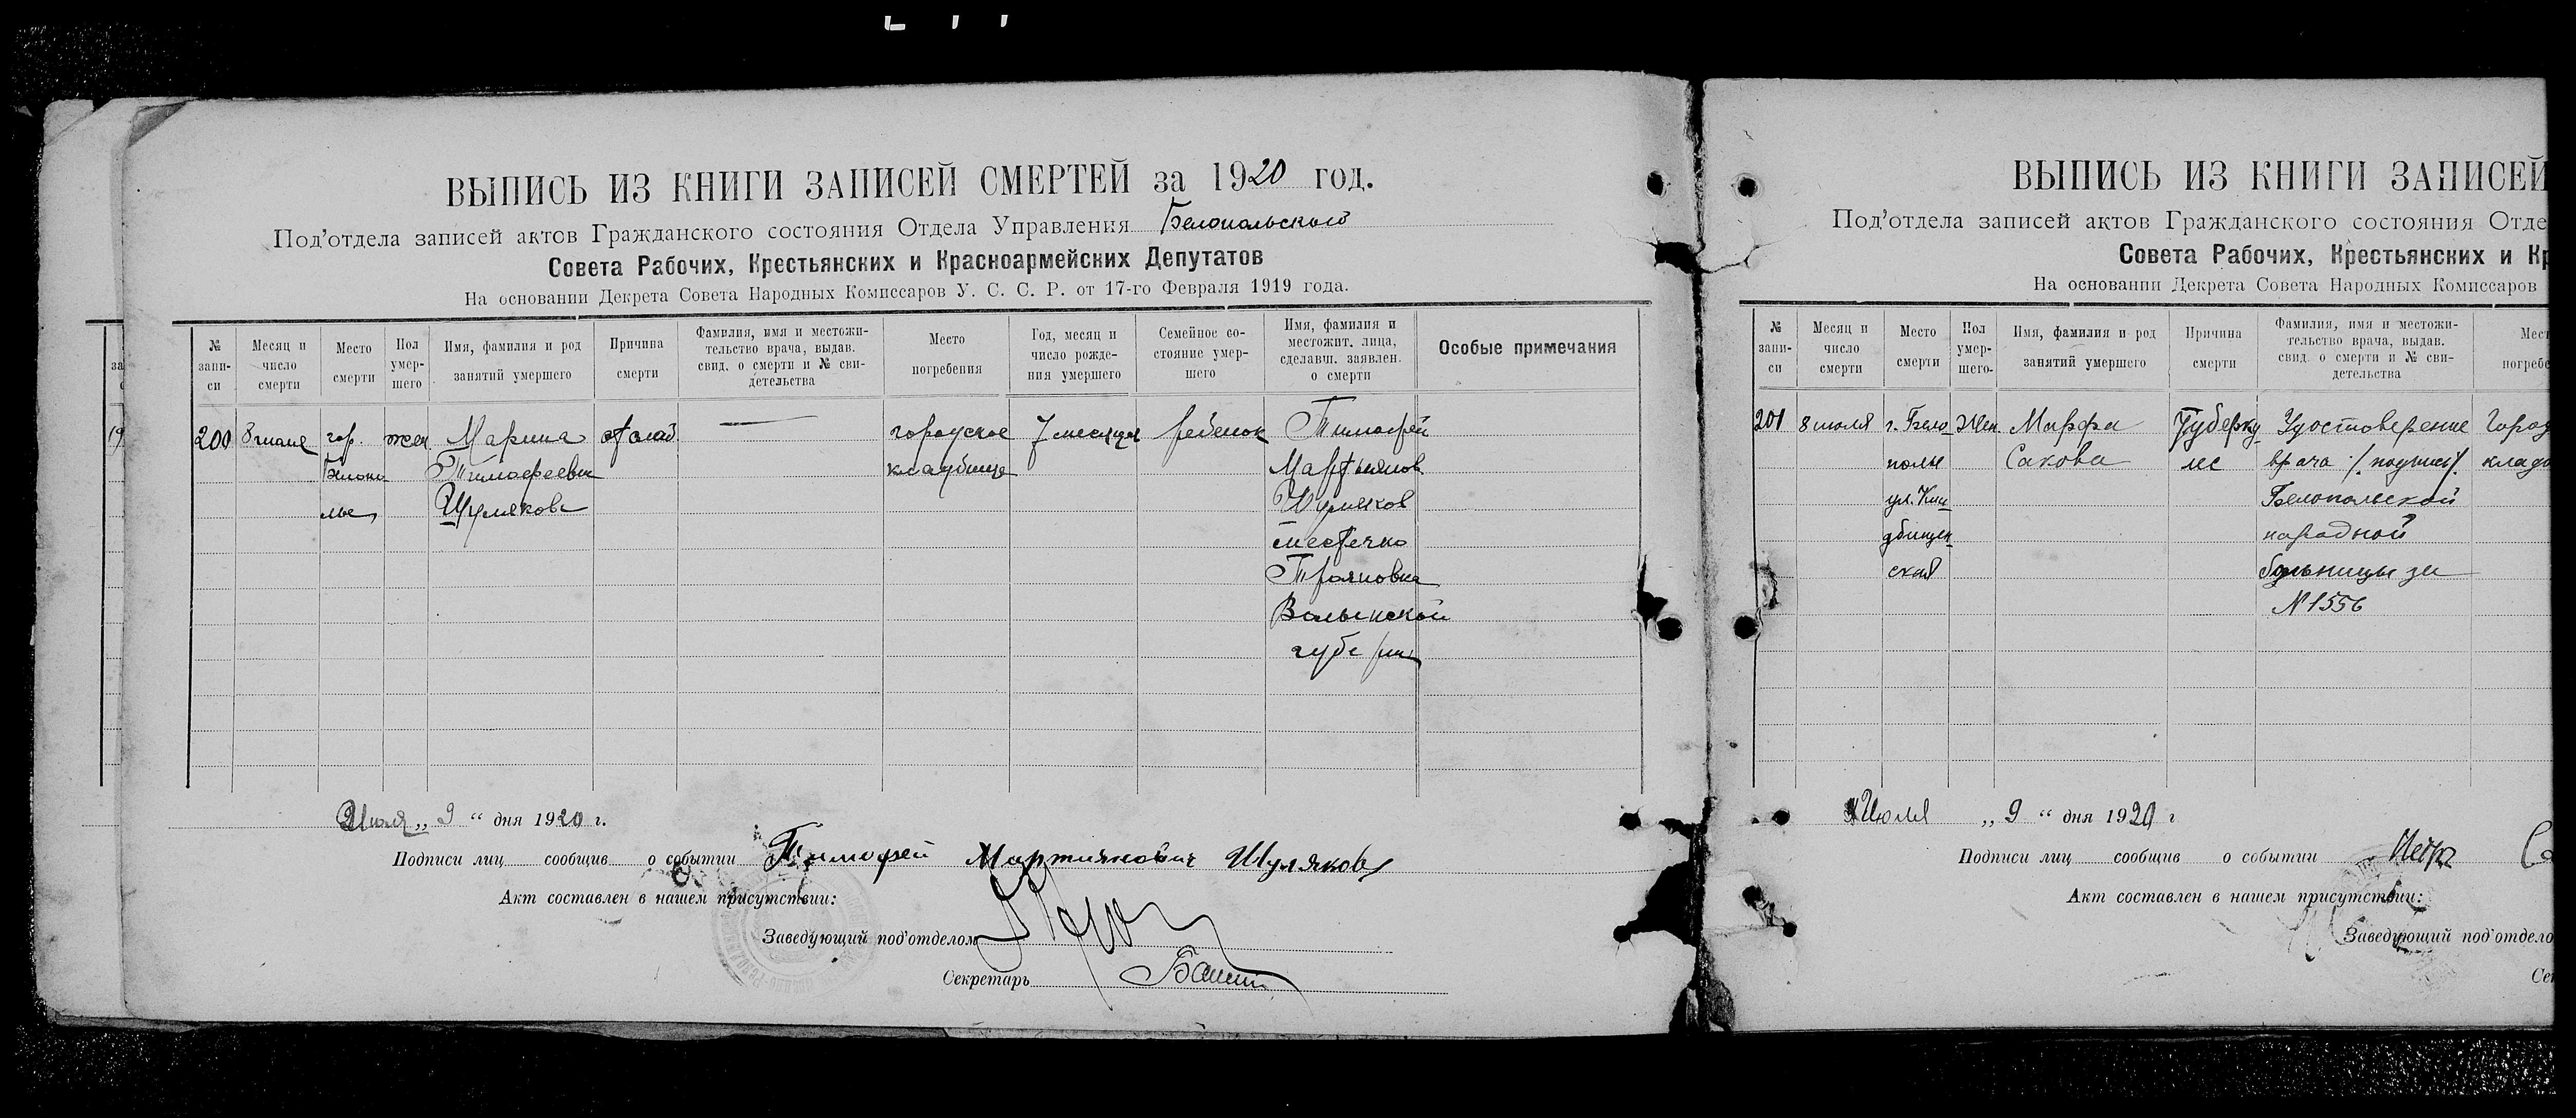 ВЫПИСЬ ИЗ КНИГИ ЗАПИСЕЙ СМЕРТЕЙ за 1920 год.
Под'отдела записей актов Гражданского состояния Отдела Управления Белопольского
Совета Рабочих, Крестьянских и Красноармейских Депутатов
На основании Декрета Совета Народных Комиссаров У. С. С. Р. от 17-го Февраля 1919 года.
№ запи-си
Месяц и число смерти
Место смерти
Пол умер-шего
Имя, фамилия и род занятий умершего
Причина смерти
Фамилия, имя и местожи-тельство врача, выдав. свид. о смерти и № сви-детельства
Место погребения
Год, месяц и число рожде-ния умершего
Семейное со-стояние умер-шего
Имя, фамилия и местожит. лица, сделавш. заявлен. о смерти
Особые примечания
200
8 июля
гор.
Белопо
лье
жен
Марина
Тимофеевна
Шулякова
—
городское
кладбище
7 месяцев
ребенок
Тимофей
Мартьянов
Шуляков
местечко
Трояновка
Волынской
губернии
Июля „ 9 “ дня 1920 г.
Подписи лиц сообщив о событии Тимофей Мартиянович Шуляковъ
Акт составлен в нашем присутствии:
Заведующий под'отделом
Секретарь
за
19
ВЫПИСЬ ИЗ КНИГИ ЗАПИСЕЙ
Под'отдела записей актов Гражданского состояния Отде
Совета Рабочих, Крестьянских и Кр
На основании Декрета Совета Народных Комиссаров
№ запи-си
Месяц и число смерти
Место смерти
Пол умер-шего-
Имя, фамилия и род занятий умершего
Причина смерти
Фамилия, имя и местожи-тельство врача, выдав. свид. о смерти и № сви-детельства
Мест
погребе
201
8 июля
г. Бело-
полье
ул. Кла
дбищен-
ская
Жен.
Марфа
Сакова
Туберку
лес
Удостоверение
врача /. подпись/.
Белопольской
народной
больницы за
№ 1556
Город
кладб
Июля „ 9 “ дня 1920 г
Подписи лиц сообщив о событии Петр Са
Акт составлен в нашем присутствии:
Заведующий под'отдело
Сек